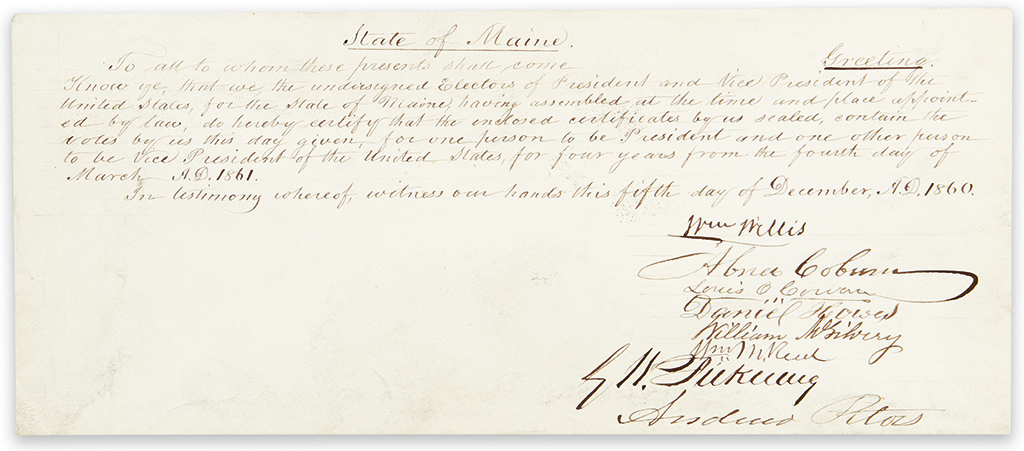 State of Maine.
To all to whom these presents shall come
Greeting.
Know ye, that we, the undersigned Electors of President and Vice President of the
United States, for the State of Maine, having assembled at the time and place appoint-
ed by law, do hereby certify that the enclosed certificates by us sealed, contain the
votes by us this day given, for one person to be President and one other person
to be Vice President of the United States, for four years from the fourth day of
March A.D. 1861.
In testimony whereof, witness our hands this fifth day of December, A.D. 1860.
Wm Willis
Abner Coburn
Louis O. Cowan
Daniel Howes
William McGilvery
Wm M. Reed
G. W. Pickering
Andrew Peters